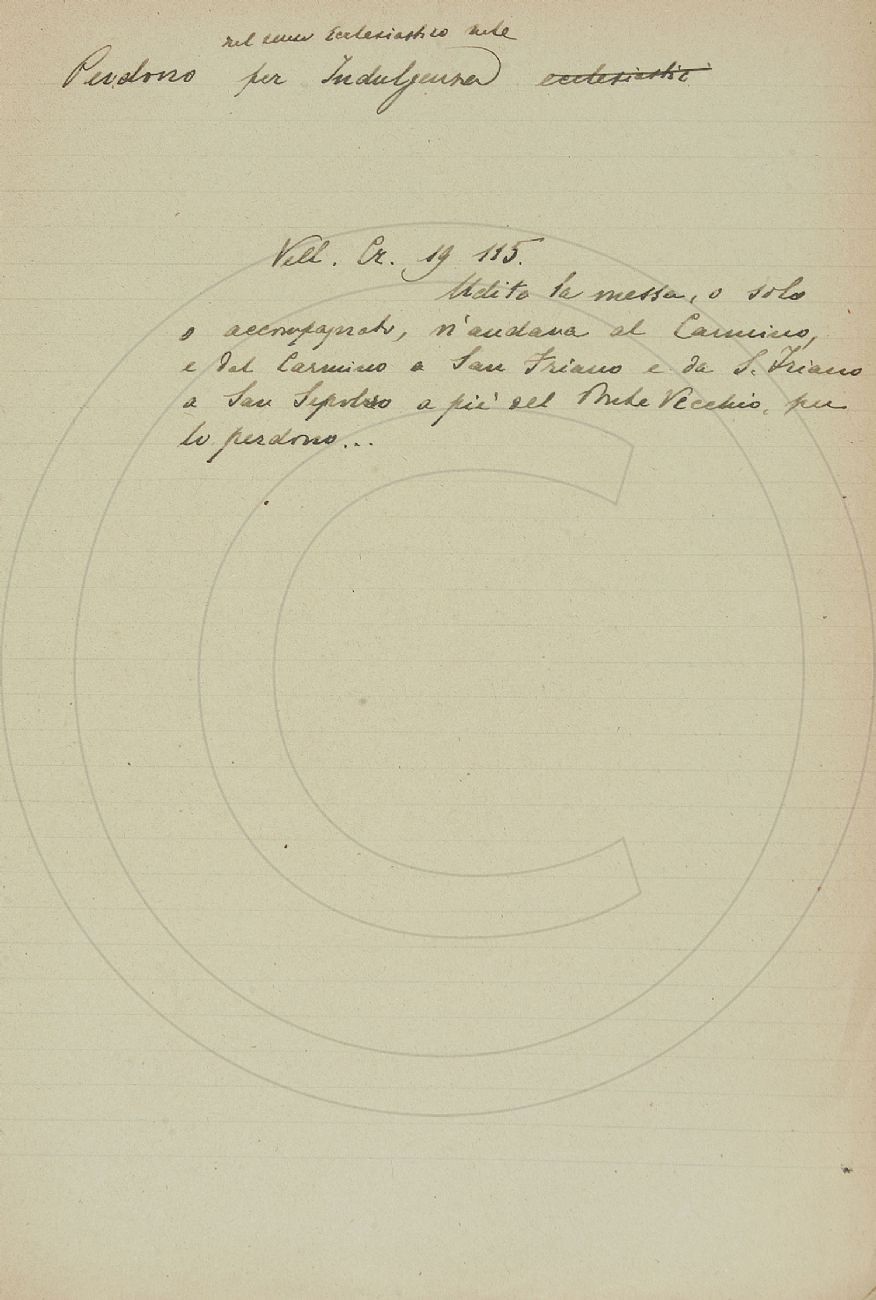 nel senso Ecclesiastico
Perdono per Indulgenza ecclesiastic
Vell. Cr. 19 115.
Udito la messa, o solo
o accompagnato, n'andava al Carmino,
e dal Carmino a San Friano e da S. Friano
a San Sipolcro a piè del Ponte Vecchio, per
lo perdono...